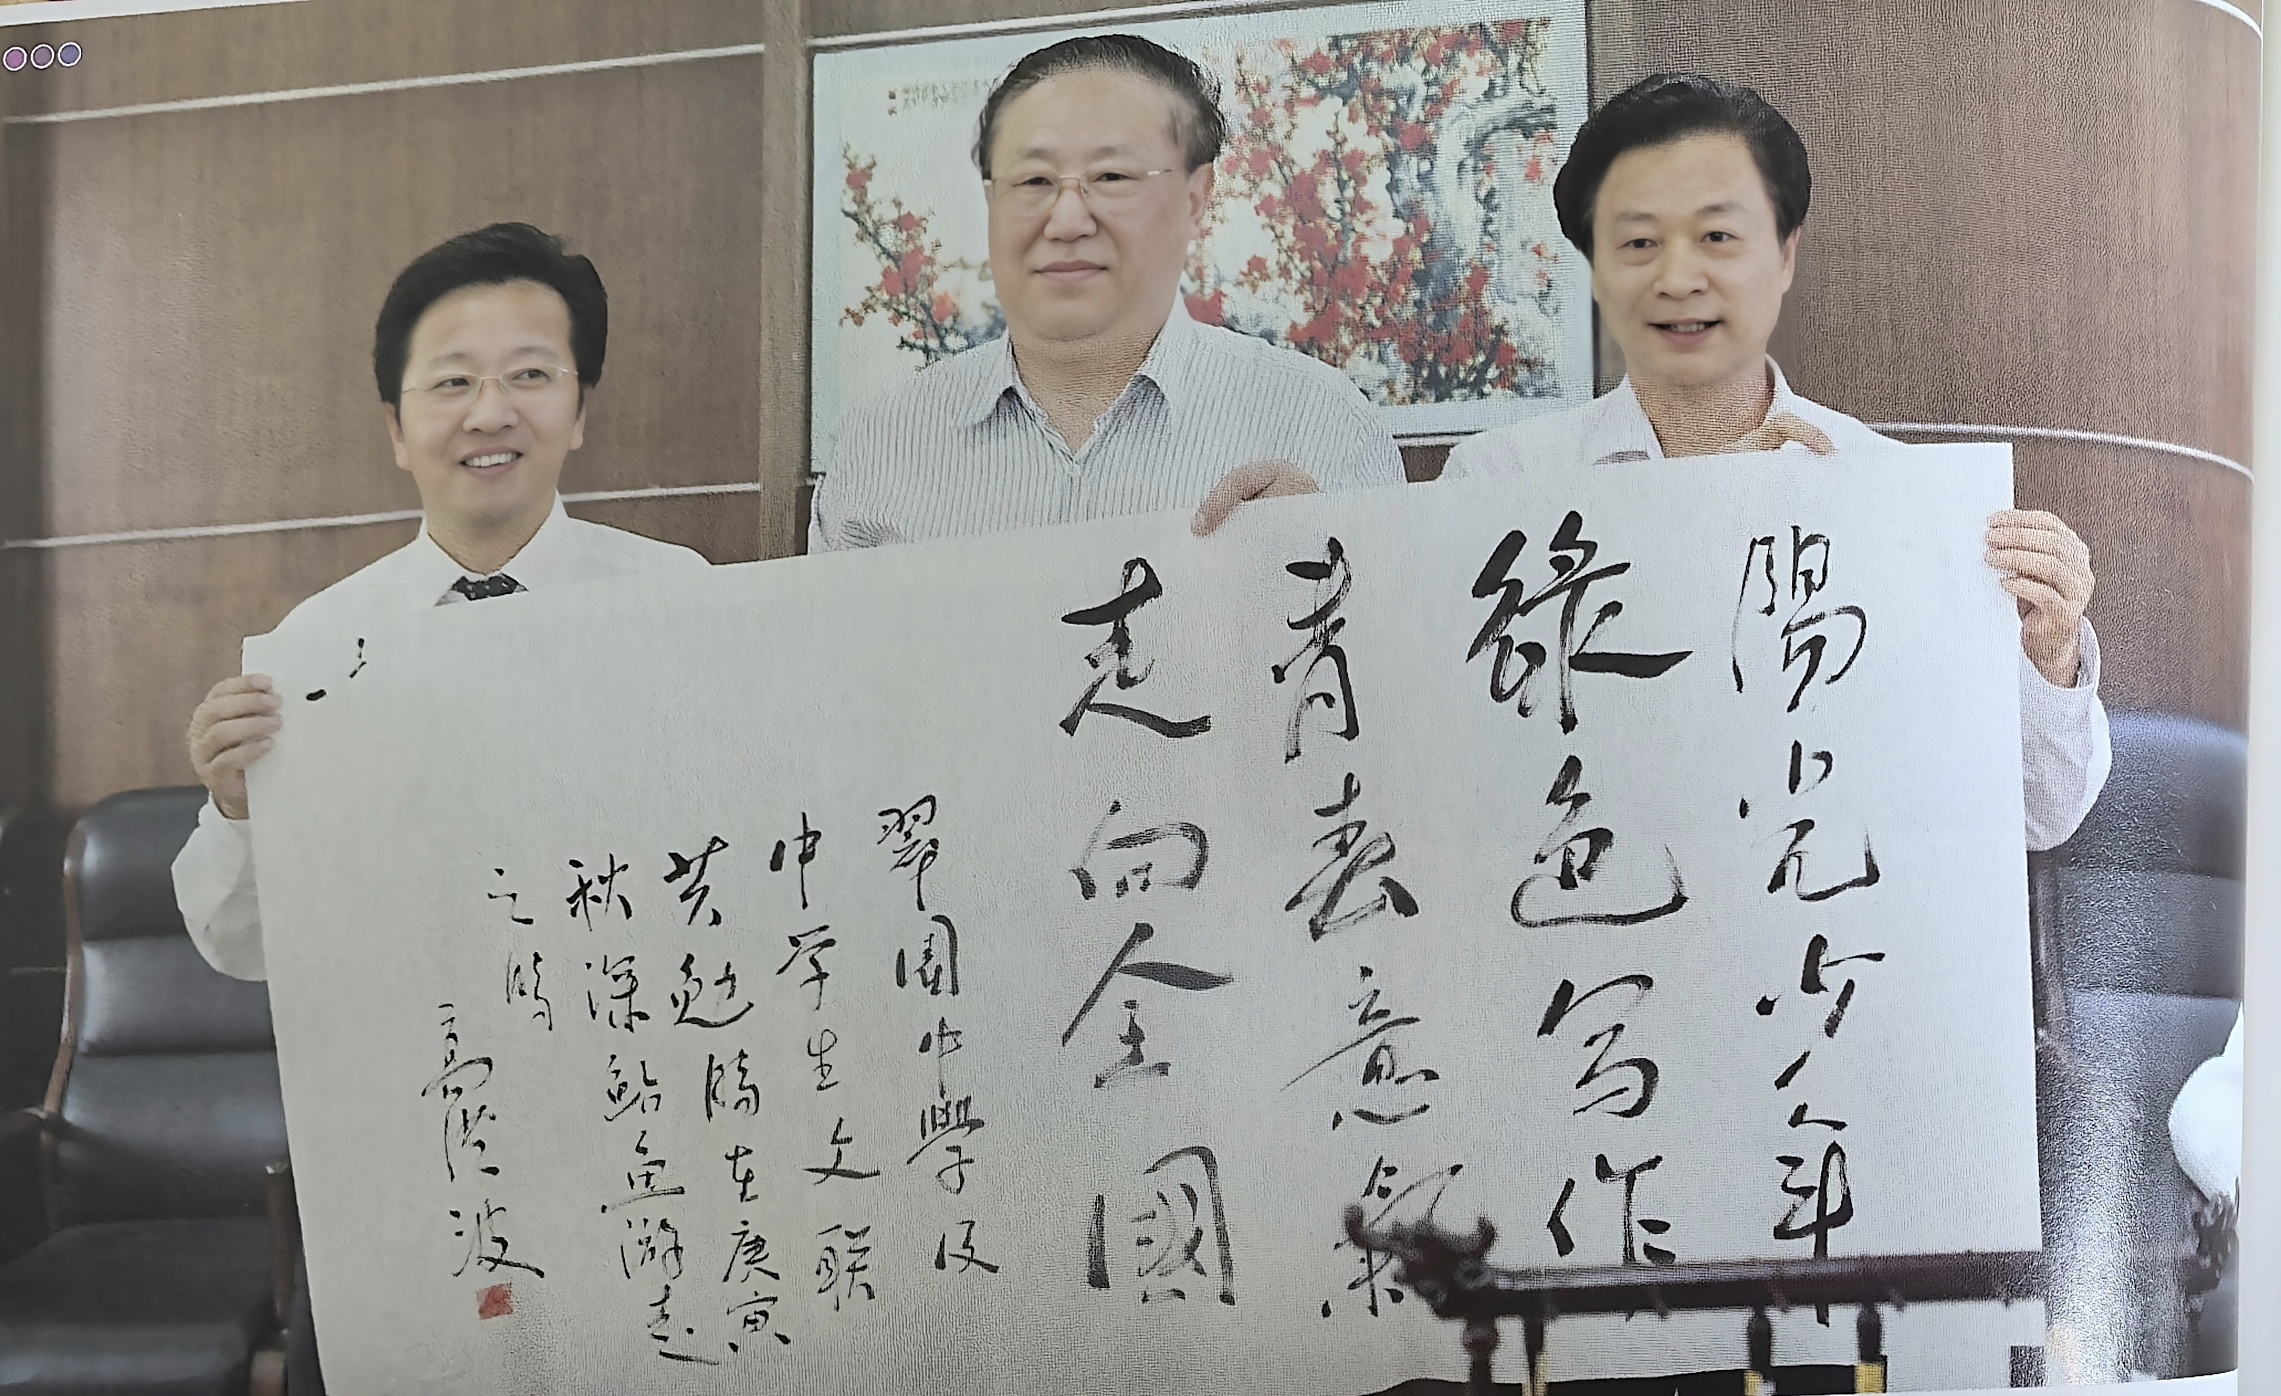 陽光少年
綠色写作
青春意氣
走向全國
翠園中學及
中学生文联
共勉 時在庚寅
秋深鲇魚游走
之時
高洪波